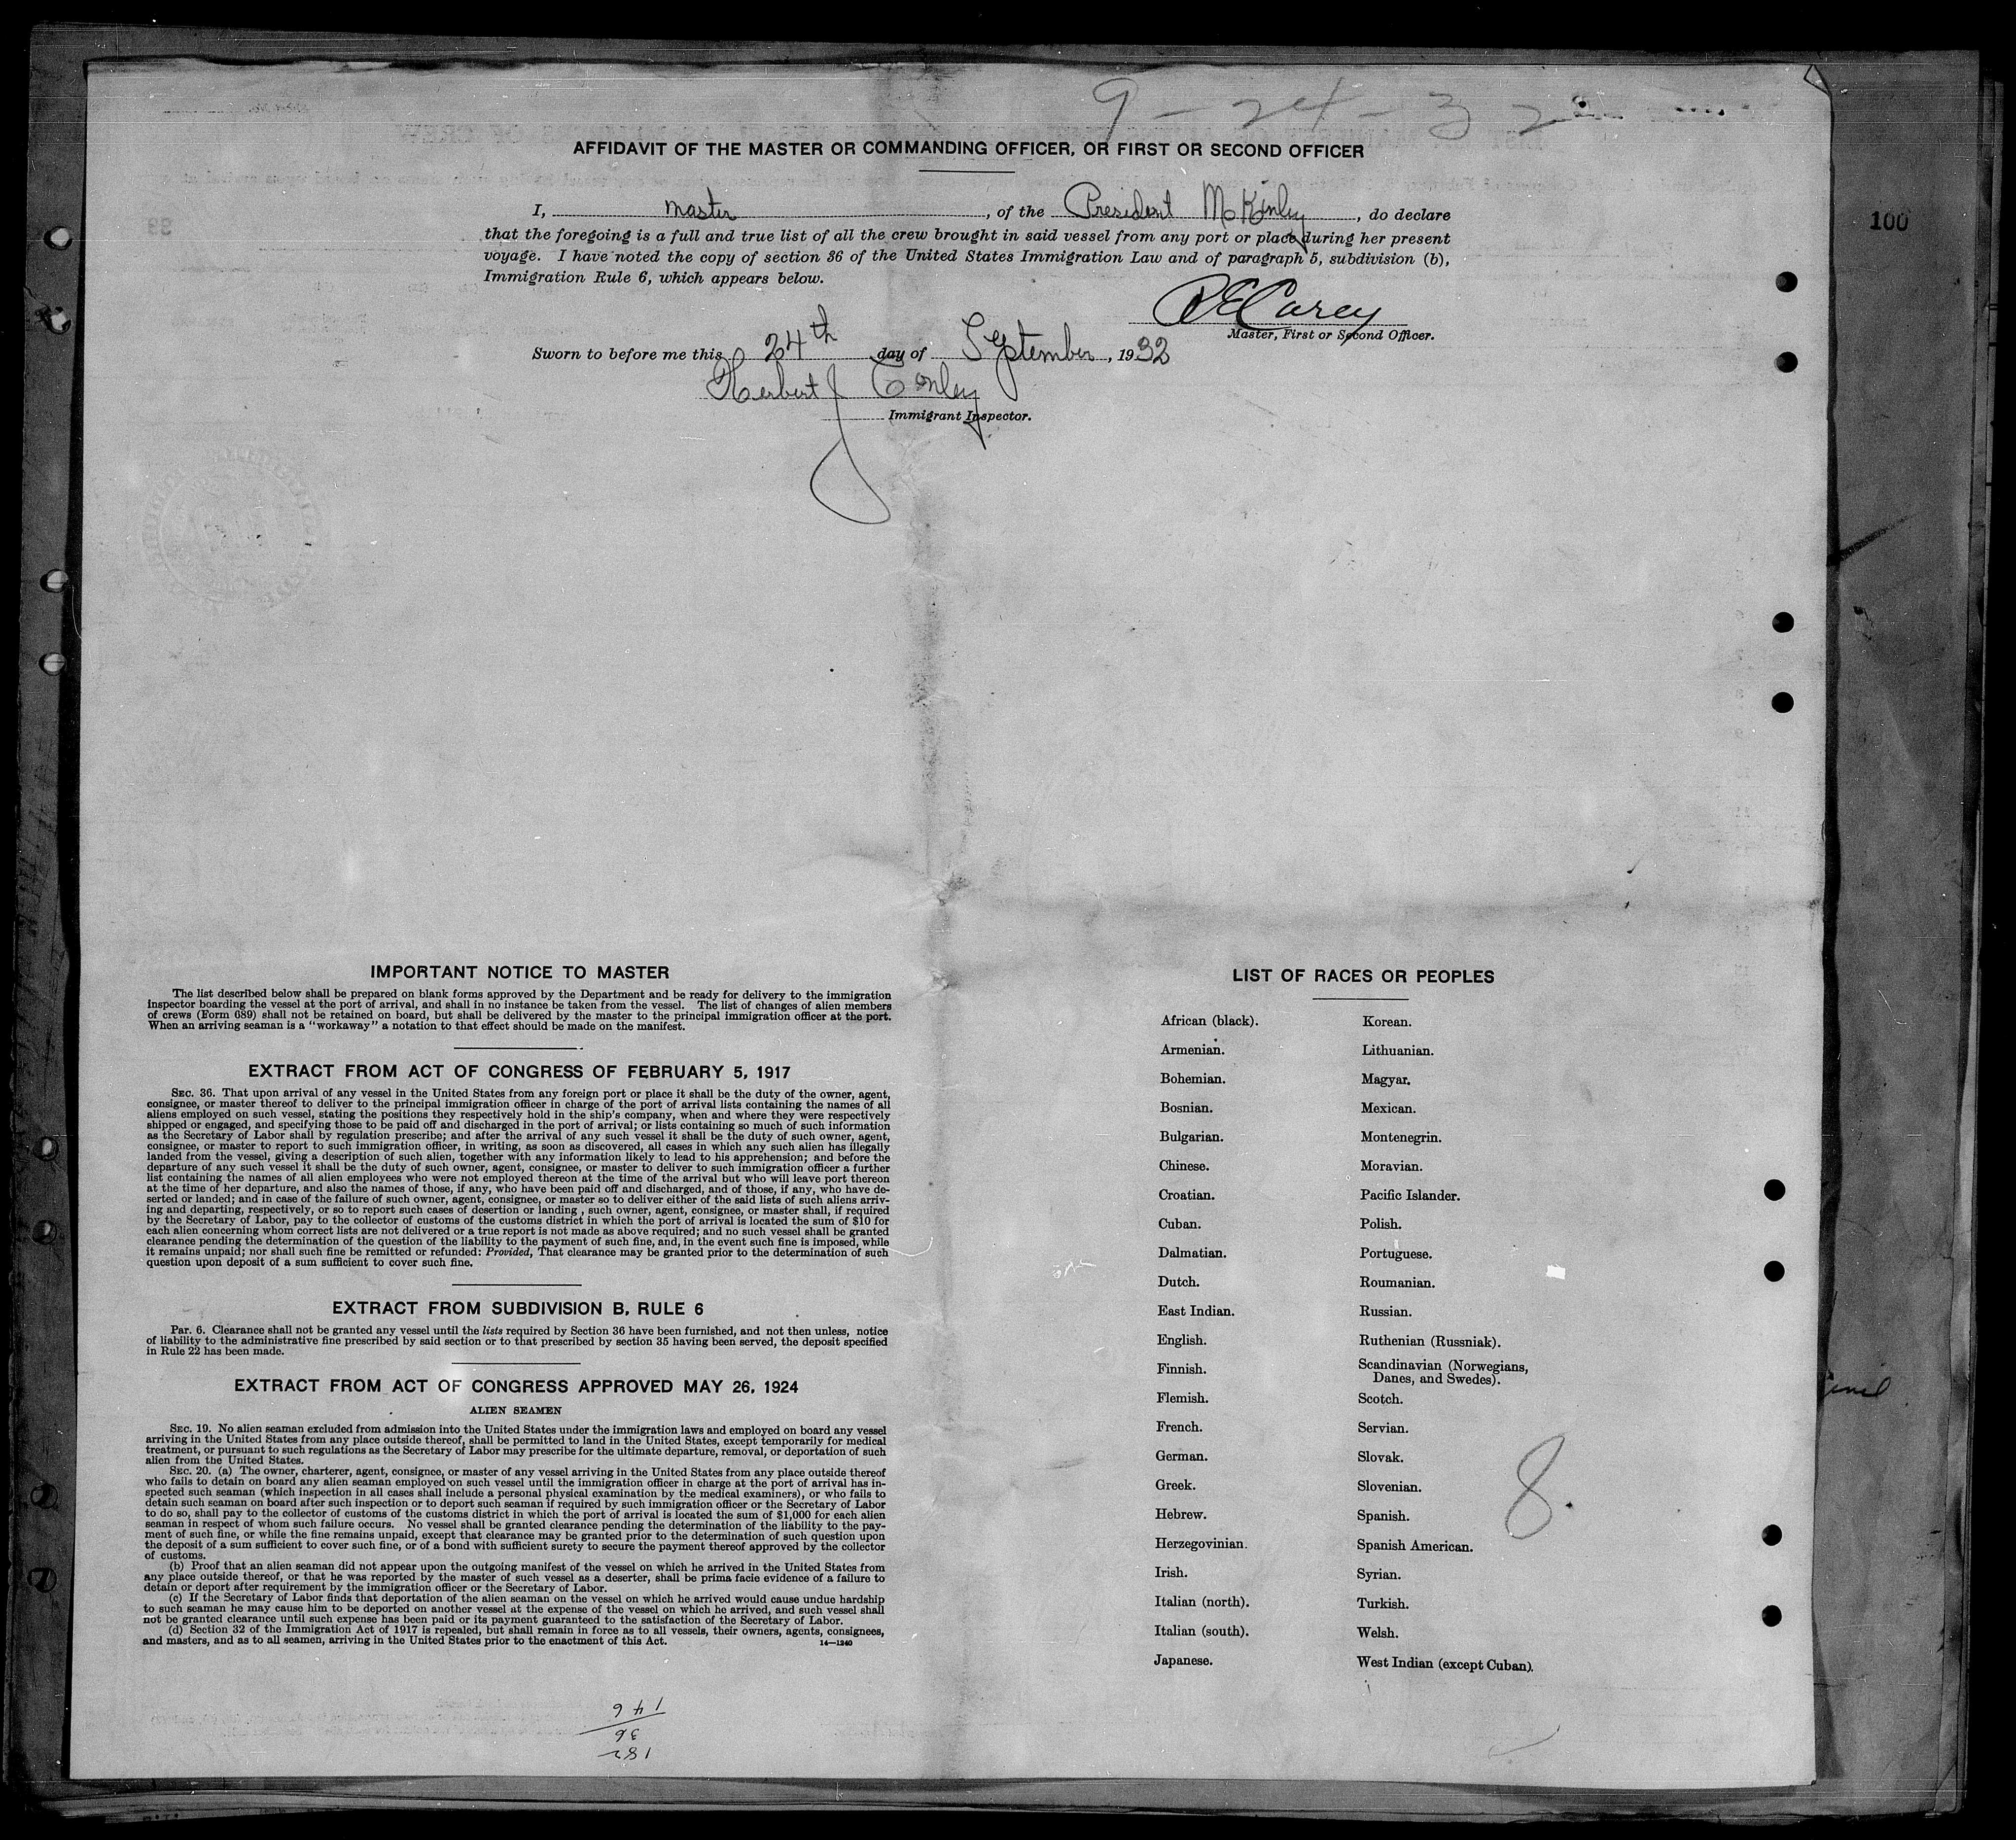 9-24-32
AFFIDAVIT OF THE MASTER OR COMMANDING OFFICER, OR FIRST OR SECOND OFFICER
I, master, of the President McKinley, do declare
that the foregoing is a full and true list of all the crew brought in said vessel from any port or place during her present
voyage. I have noted the copy of section 36 of the United States Immigration Law and of paragraph 5, subdivision (b),
Immigration Rule 6, which appears below.
Carey
Master, First or Second Officer.
Sworn to before me this 24th day of September, 1932
Herbert J Conley
Immigrant Inspector.
100
IMPORTANT NOTICE TO MASTER
The list described below shall be prepared on blank forms approved by the Department and be ready for delivery to the immigration
inspector boarding the vessel at the port of arrival, and shall in no instance be taken from the vessel. The list of changes of alien members
of crews (Form 689) shall not be retained on board, but shall be delivered by the master to the principal immigration officer at the port.
When an arriving seaman is a "workaway" a notation to that effect should be made on the manifest.
EXTRACT FROM ACT OF CONGRESS OF FEBRUARY 5, 1917
SEC. 36. That upon arrival of any vessel in the United States from any foreign port or place it shall be the duty of the owner, agent,
consignee, or master thereof to deliver to the principal immigration officer in charge of the port of arrival lists containing the names of all
aliens employed on such vessel, stating the positions they respectively hold in the ship's company, when and where they were respectively
shipped or engaged, and specifying those to be paid off and discharged in the port of arrival; or lists containing so much of such information
as the Secretary of Labor shall by regulation prescribe; and after the arrival of any such vessel it shall be the duty of such owner, agent,
consignee, or master to report to such immigration officer, in writing, as soon as discovered, all cases in which any such alien has illegally
landed from the vessel, giving a description of such alien, together with any information likely to lead to his apprehension; and before the
departure of any such vessel it shall be the duty of such owner, agent, consignee, or master to deliver to such immigration officer a further
list containing the names of all alien employees who were not employed thereon at the time of the arrival but who will leave port thereon
at the time of her departure, and also the names of those, if any, who have been paid off and discharged, and of those, if any, who have de-
serted or landed; and in case of the failure of such owner, agent, consignee, or master so to deliver either of the said lists of such aliens arriv-
ing and departing, respectively, or so to report such cases of desertion or landing , such owner, agent, consignee, or master shall, if required
by the Secretary of Labor, pay to the collector of customs of the customs district in which the port of arrival is located the sum of $10 for
each alien concerning whom correct lists are not delivered or a true report is not made as above required; and no such vessel shall be granted
clearance pending the determination of the question of the liability to the payment of such fine, and, in the event such fine is imposed, while
it remains unpaid; nor shall such fine be remitted or refunded: Provided, That clearance may be granted prior to the determination of such
question upon deposit of a sum sufficient to cover such fine.
EXTRACT FROM SUBDIVISION B, RULE 6
PAR. 6. Clearance shall not be granted any vessel until the lists required by Section 36 have been furnished, and not then unless, notice
of liability to the administrative fine prescribed by said section or to that prescribed by section 35 having been served, the deposit specified
in Rule 22 has been made.
EXTRACT FROM ACT OF CONGRESS APPROVED MAY 26, 1924
ALIEN SEAMEN
SEC. 19. No alien seaman excluded from admission into the United States under the immigration laws and employed on board any vessel
arriving in the United States from any place outside thereof, shall be permitted to land in the United States, except temporarily for medical
treatment, or pursuant to such regulations as the Secretary of Labor may prescribe for the ultimate departure, removal, or deportation of such
alien from the United States.
SEC. 20. (a) The owner, charterer, agent, consignee, or master of any vessel arriving in the United States from any place outside thereof
who fails to detain on board any alien seaman employed on such vessel until the immigration officer in charge at the port of arrival has in-
spected such seaman (which inspection in all cases shall include a personal physical examination by the medical examiners), or who fails to
detain such seaman on board after such inspection or to deport such seaman if required by such immigration officer or the Secretary of Labor
to do so, shall pay to the collector of customs of the customs district in which the port of arrival is located the sum of $1,000 for each alien
seaman in respect of whom such failure occurs. No vessel shall be granted clearance pending the determination of the liability to the pay-
ment of such fine, or while the fine remains unpaid, except that clearance may be granted prior to the determination of such question upon
the deposit of a sum sufficient to cover such fine, or of a bond with sufficient surety to secure the payment thereof approved by the collector
of customs.
(b) Proof that an alien seaman did not appear upon the outgoing manifest of the vessel on which he arrived in the United States from
any place outside thereof, or that he was reported by the master of such vessel as a deserter, shall be prima facie evidence of a failure to
detain or deport after requirement by the immigration officer or the Secretary of Labor.
(c) If the Secretary of Labor finds that deportation of the alien seaman on the vessel on which he arrived would cause undue hardship
to such seaman he may cause him to be deported on another vessel at the expense of the vessel on which he arrived, and such vessel shall
not be granted clearance until such expense has been paid or its payment guaranteed to the satisfaction of the Secretary of Labor.
(d) Section 32 of the Immigration Act of 1917 is repealed, but shall remain in force as to all vessels, their owners, agents, consignees,
and masters, and as to all seamen, arriving in the United States prior to the enactment of this Act. 14—1240
182
36
146
LIST OF RACES OR PEOPLES
African (black).
Armenian.
Bohemian.
Bosnian.
Bulgarian.
Chinese.
Croatian.
Cuban.
Dalmatian.
Dutch.
East Indian.
English.
Finnish.
Flemish.
French.
German.
Greek.
Hebrew.
Herzegovinian.
Irish.
Italian (north).
Italian (south).
Japanese.
Korean.
Lithuanian.
Magyar.
Mexican.
Montenegrin.
Moravian.
Pacific Islander.
Polish.
Portuguese.
Roumanian.
Russian.
Ruthenian (Russniak).
Scandinavian (Norwegians,
Danes, and Swedes).
Scotch.
Servian.
Slovak.
Slovenian.
Spanish.
Spanish American.
Syrian.
Turkish.
Welsh.
West Indian (except Cuban).
8